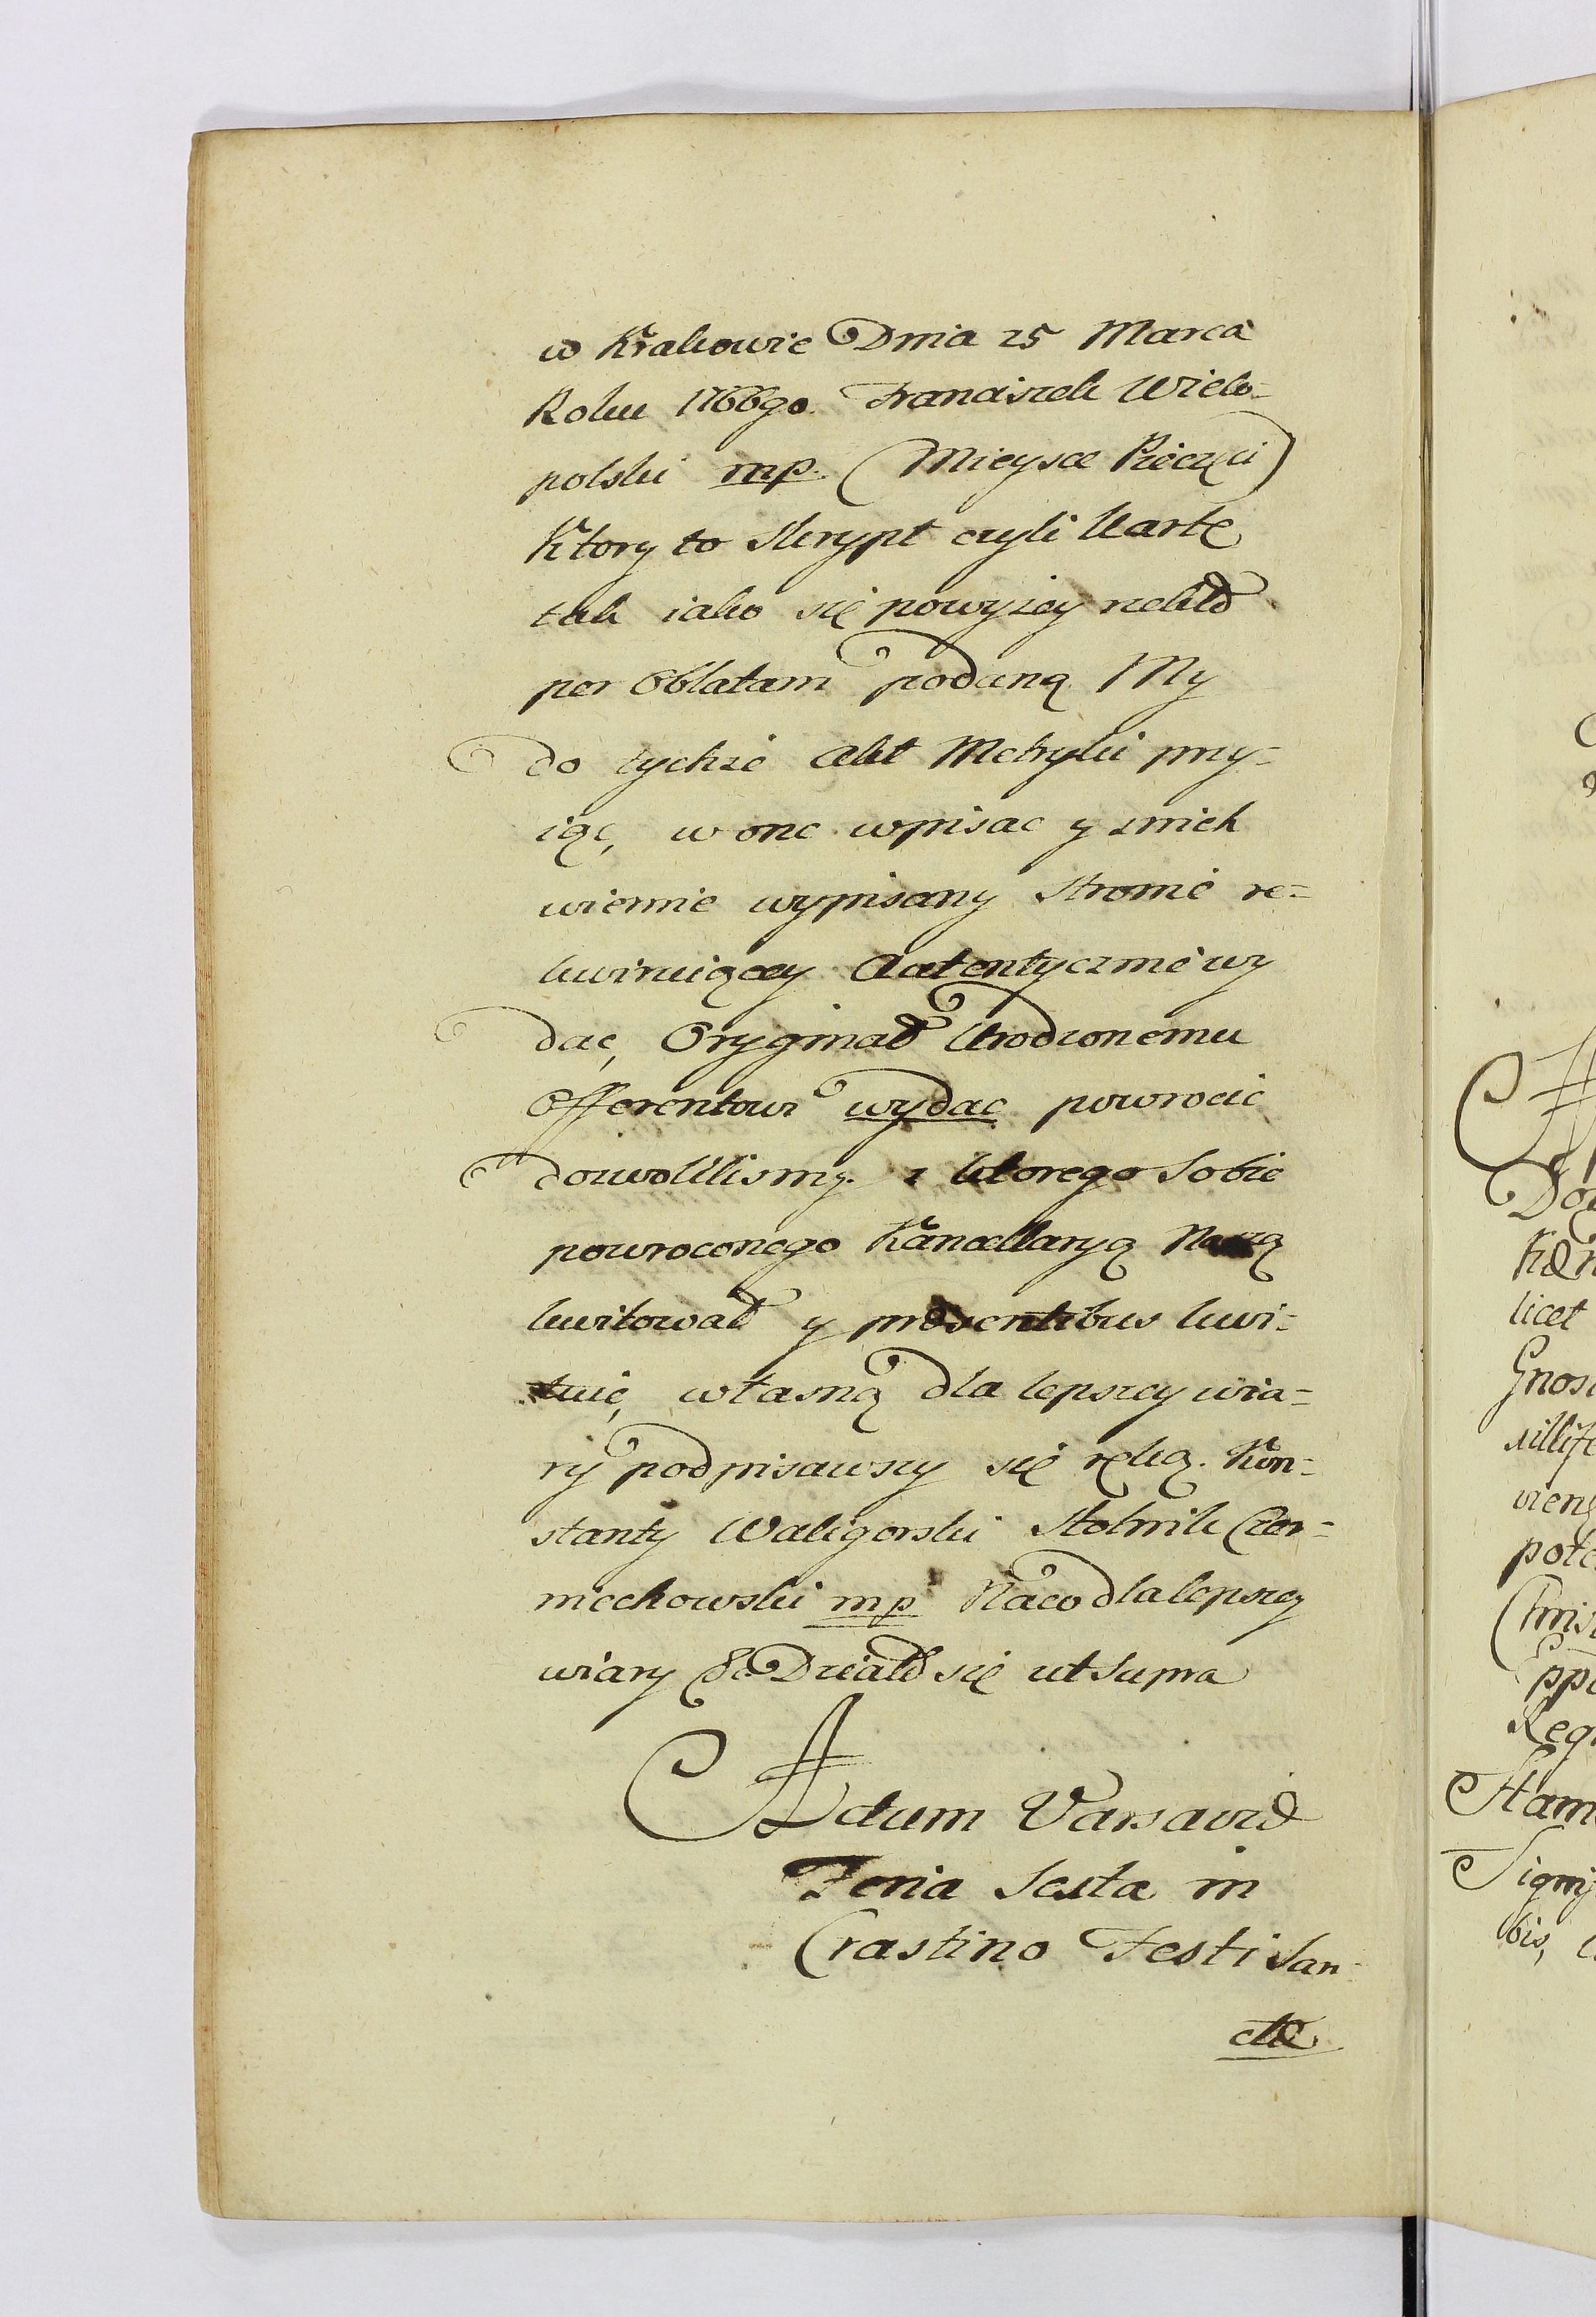 w Krakowie Dnia 25 Marca
Roku 1766go. Franciszek Wielo-
polski mp. (Mieysce Pieczęci)
Ktory to Skrypt czyli kartę
tak iako się powyzey rzekło
per Oblatam podaną My
do tychże Akt Metryki przy-
iąć, w one wpisac y z nich
wiernie wypisany stronie re-
kwiruiącey Autentycznie wy
dac, Oryginał Urodzonemu
Offerentowi wydac powrocic
dozwolilismy. z ktorego sobie
powroconego Kancellaryą Naszą
kwitował y præsentibus kwi-
tuie, własną dla lepszey wia-
ry podpisawszy się ręką. Kon-
stanty Waligorski Stolnik Czer-
niechowski mp Naco dla lepszey
wiary &c Działo się ut supra
Actum Varsaviæ
Feria Sexta in
Crastino Festi San-
ctæ
licet
bis,